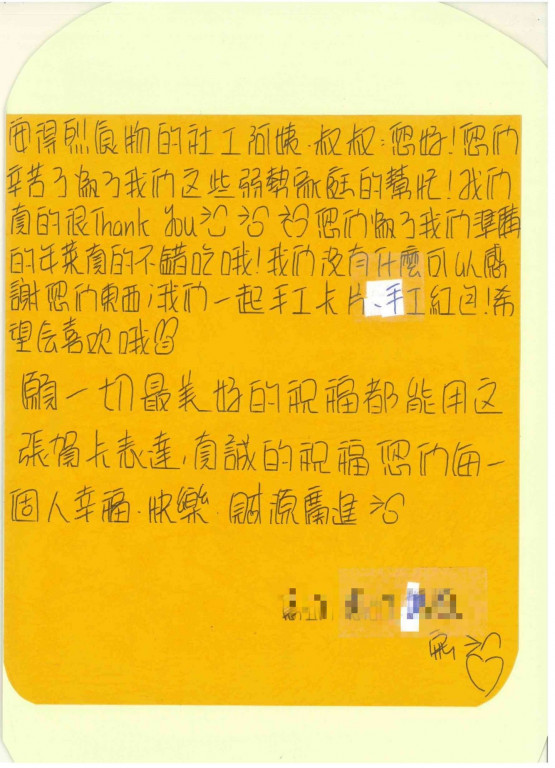 安得烈食物的社工阿姨.叔叔:您好!您们
辛苦了做了我们这些弱勢家庭的幫忙!我们
真的很Thank You 您们做了我们準購
的年菜真的不錯吃哦!我们沒有什麼可以感
謝您们東西;我们一起手工卡片、手工紅包!希
望会喜欢哦
願一切最美好的祝福都能用这
張賀卡表達,真誠的祝福您们每一
個人幸福.快樂.財源廣進